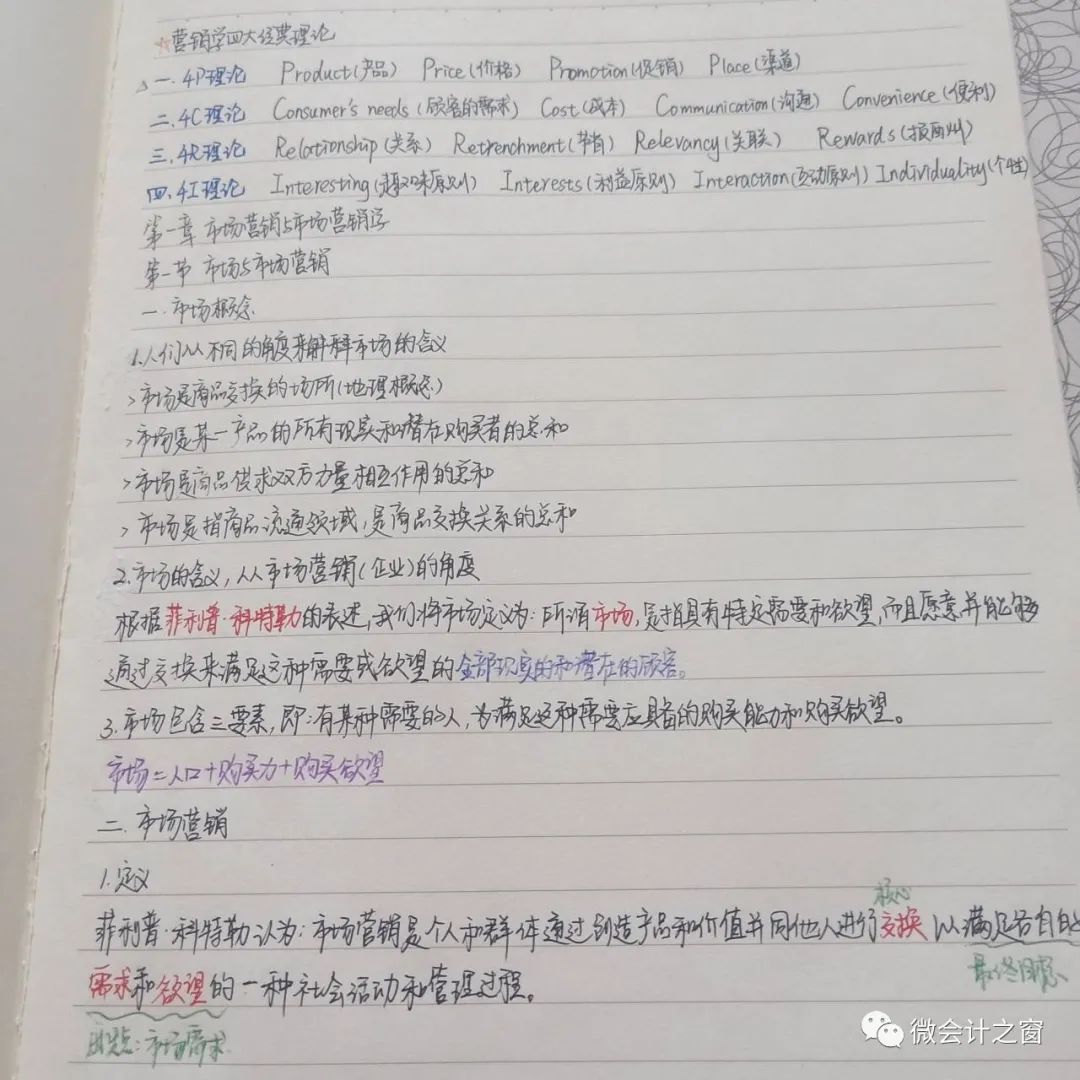 ☆营销学四大经典理论
△一.4P理论 Product(产品) Price(价格) Promotion(促销) Place(渠道)
二.4C理论 Consumer's needs(顾客的需求) Cost(成本) Communication(沟通) Convenience(便利)
三.4R理论 Relationship(关系) Retrenchment(节省) Relevancy(关联) Rewards(报酬)
四.4I理论 Interesting(趣味原则) Interests(利益原则) Interaction(互动原则) Individuality(个性)
第一章 市场营销与市场营销学
第一节 市场与市场营销
一.市场概念
1.人们从不同的角度来解释市场的含义
>市场是商品交换的场所(地理概念)
>市场是某一产品的所有现实和潜在购买者的总和
>市场是商品供求双方力量相互作用的总和
>市场是指商品流通领域,是商品交换关系的总和
2.市场的含义,从市场营销(企业)的角度
根据菲利普·科特勒的表述,我们将市场定义为:所谓市场,是指具有特定需要和欲望,而且愿意并能够
通过交换来满足这种需要或欲望的全部现实的和潜在的顾客。
3.市场包含三要素,即:有某种需要的人,为满足这种需要应具备的购买能力和购买欲望。
市场=人口+购买力+购买欲望
二.市场营销
1.定义
核心
菲利普·科特勒认为:市场营销是个人和群体通过创造产品和价值并同他人进行交换以满足各自的
最终目标
需求和欲望的一种社会活动和管理过程。
出发点:市场需求
微会计之窗